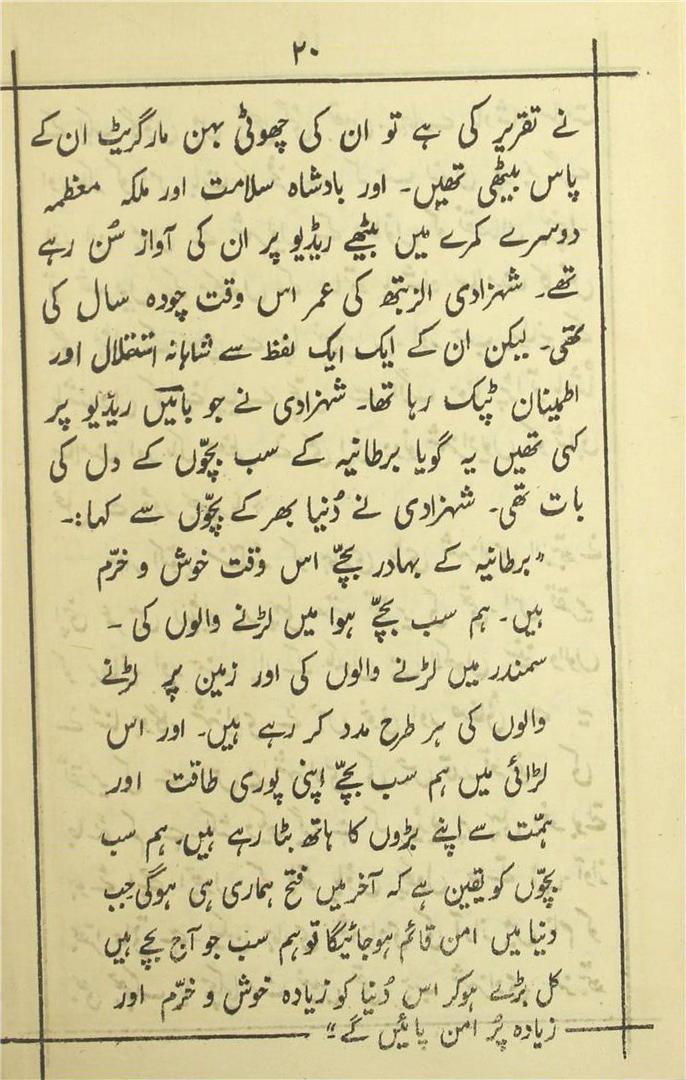 ۲۰
نے تقریر کی ہے تو ان کی چھوٹی بہن مارگریٹ ان کے
پاس بیٹھی تھیں۔ اور بادشاہ سلامت اور ملکہ معظمہ
دوسرے کمرے میں بیٹھے ریڈیو پر ان کی آواز سُن رہے
تھے۔ شہزادی الزبتھ کی عمر اس وقت چودہ سال کی
تھی۔ لیکن ان کے ایک ایک لفظ سے شاہانہ استقلال اور
اطمینان ٹپک رہا تھا۔ شہزادی نے جو باتیں ریڈیو پر
کہی تھیں یہ گویا برطانیہ کے سب بچّوں کے دل کی
بات تھی۔ شہزادی نے دُنیا بھر کے بچّوں سے کہا:۔
"برطانیہ کے بہادر بچّے اس وقت خوش و خرّم
ہیں۔ ہم سب بچّے ہوا میں لڑنے والوں کی ۔
سمندر میں لڑنے والوں کی اور زمین پر لڑنے
والوں کی ہر طرح مدد کر رہے ہیں۔ اور اس
لڑائی میں ہم سب بچّے اپنی پوری طاقت اور
ہمّت سے اپنے بڑوں کا ہاتھ بٹا رہے ہیں۔ ہم سب
بچّوں کو یقین ہے کہ آخر میں فتح ہماری ہی ہوگی جب
دنیا میں امن قائم ہوجائیگا تو ہم سب جو آج بچے ہیں
کل بڑے ہوکر اس دُنیا کو زیادہ خوش و خرّم اور
زیادہ پُر امن پائیں گے"